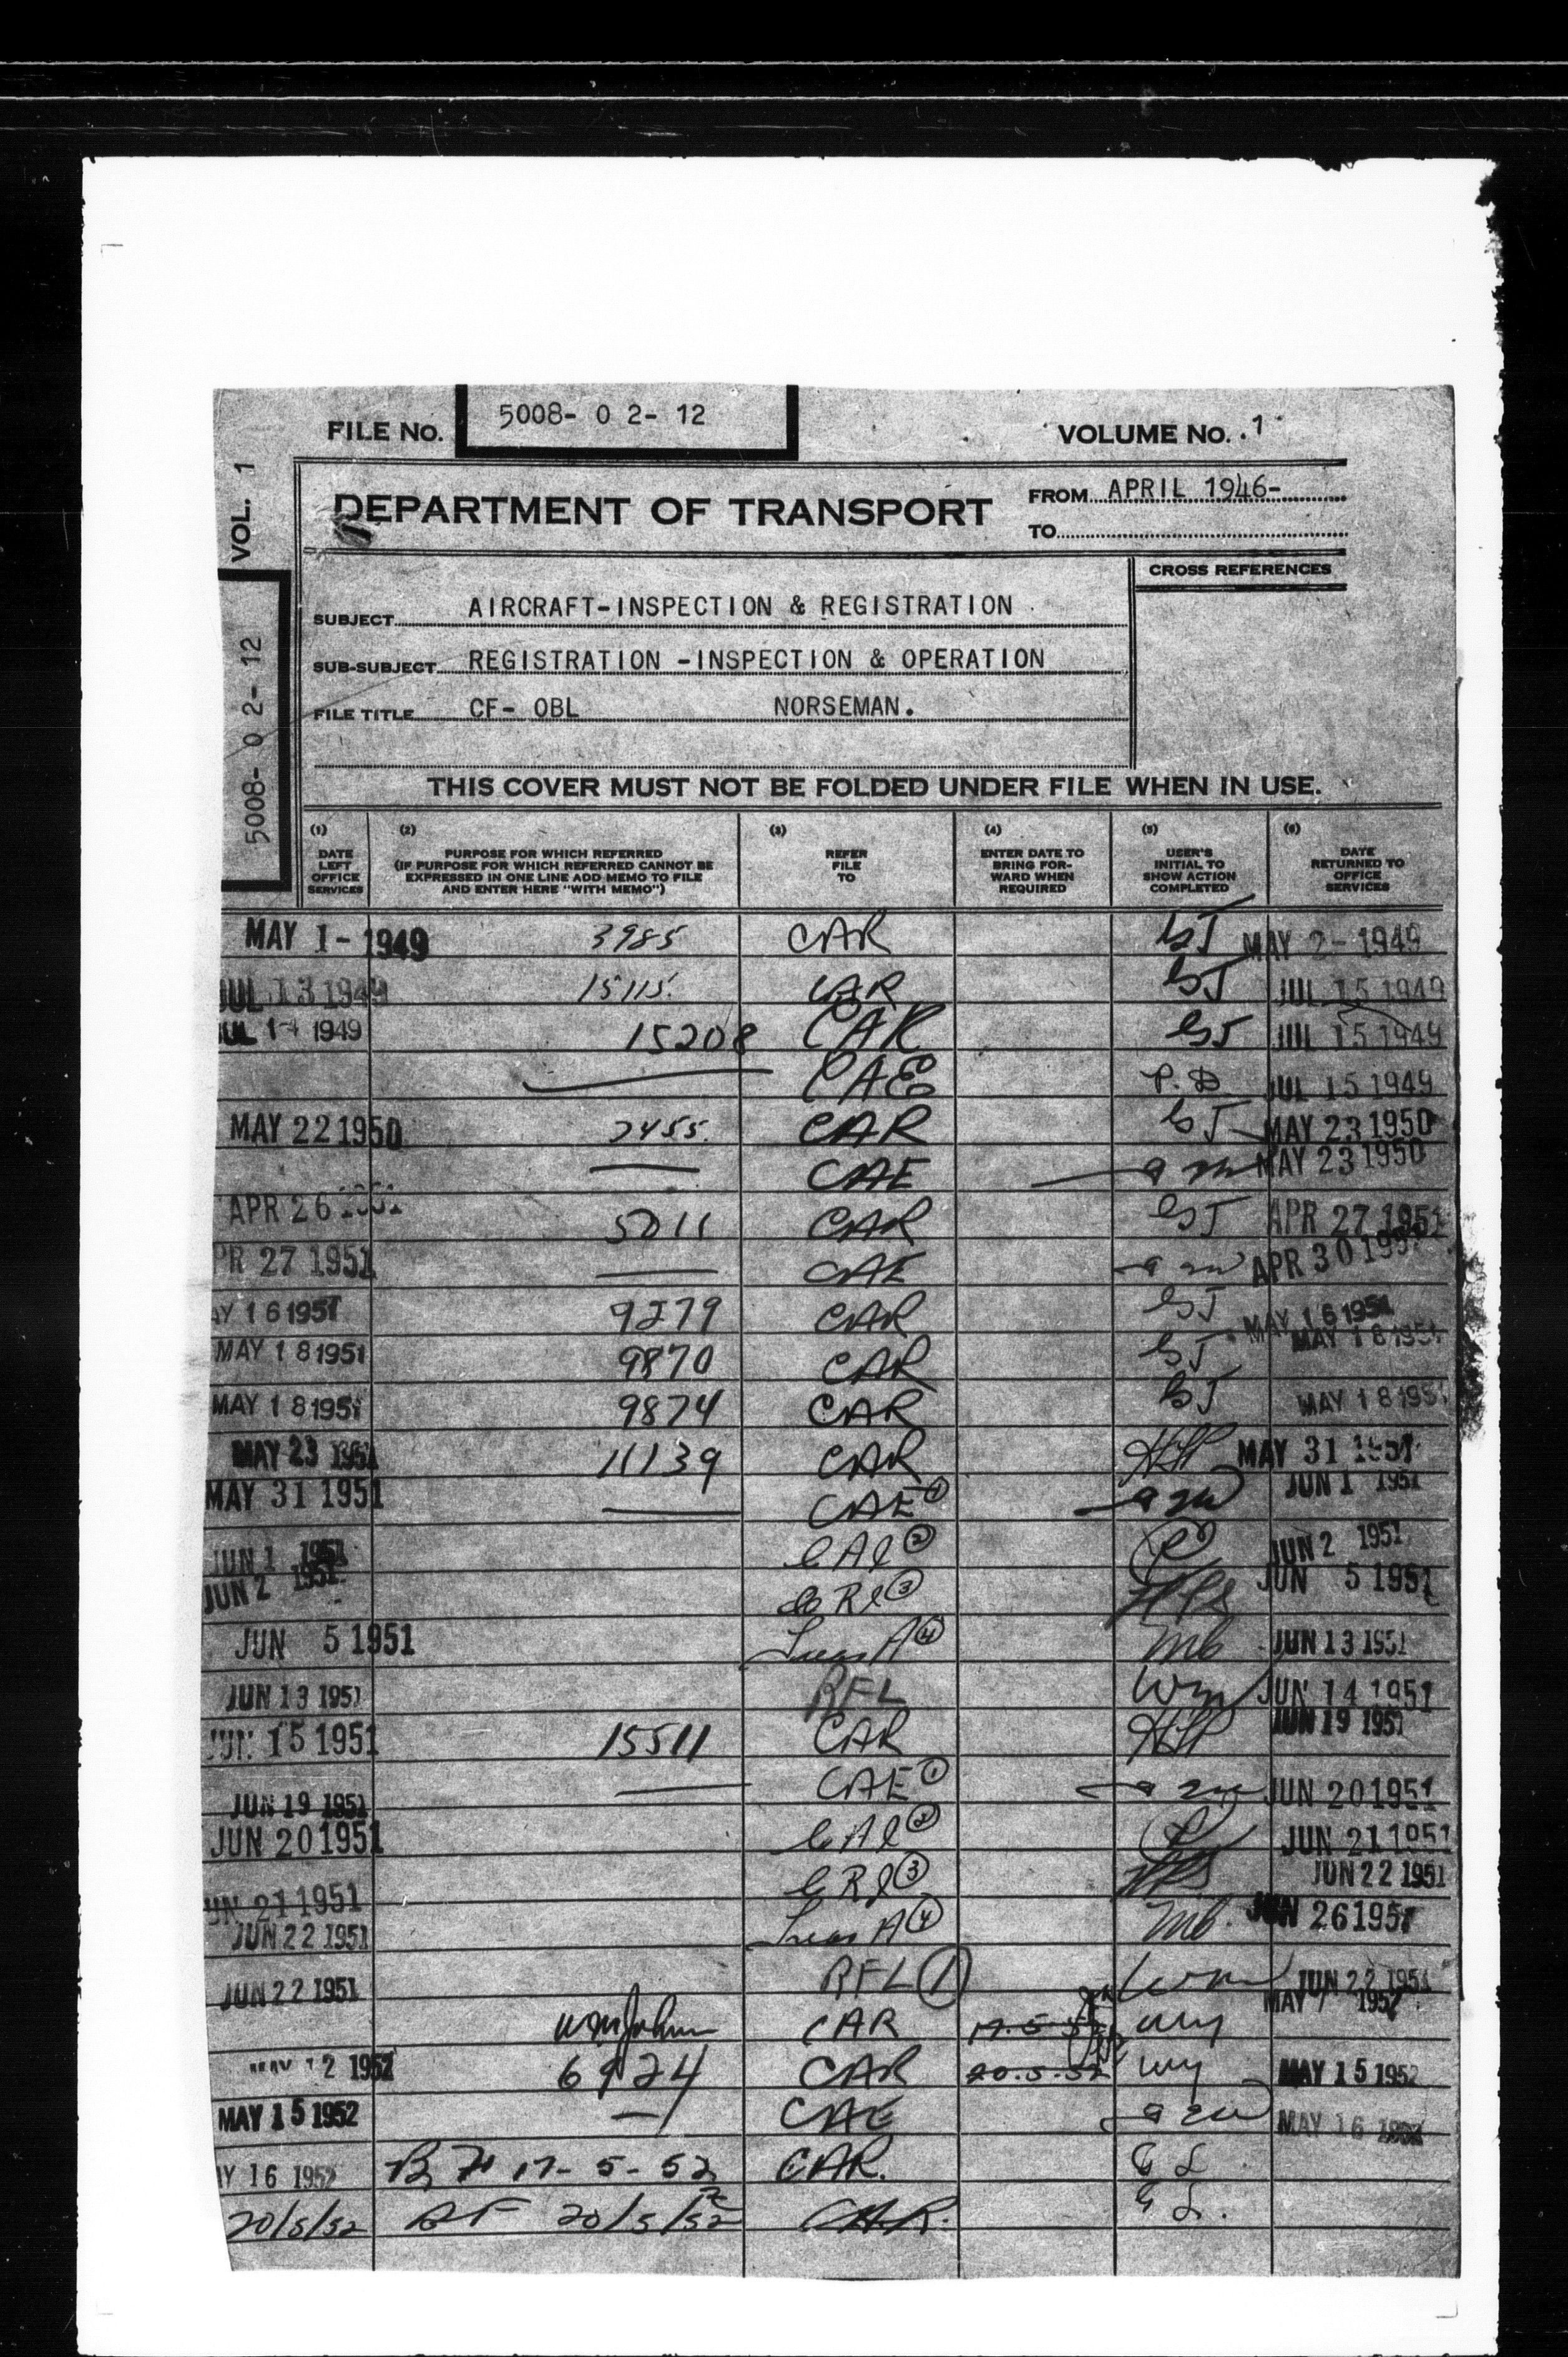 FILE NO. 5008- 0 2- 12 VOLUME NO. . 1
VOL. 1
5008- 0 2- 12
DEPARTMENT OF TRANSPORT
FROM APRIL 1946-
TO
CROSS REFERENCES
SUBJECT AIRCRAFT-INSPECTION & REGISTRATION
SUB-SUBJECT REGISTRATION -INSPECTION & OPERATION
FILE TITLE CF- OBL NORSEMAN.
THIS COVER MUST NOT BE FOLDED UNDER FILE WHEN IN USE.
(1) DATE LEFT OFFICE SERVICES
(2) PURPOSE FOR WHICH REFERRED (IF PURPOSE FOR WHICH REFERRED CANNOT BE EXPRESSED IN ONE LINE ADD MEMO TO FILE AND ENTER HERE "WITH MEMO")
(3) REFER FILE TO
(4) ENTER DATE TO BRING FORWARD WHEN REQUIRED
(5) USER'S INITIAL TO SHOW ACTION COMPLETED
(6) DATE RETURNED TO OFFICE SERVICES
MAY 1 - 1949 3985 CAR GJ MAY 2 - 1949
JUL 13 1949 15115. CAR GJ JUL 15 1949
JUL 14 1949 15208 CAR GJ JUL 15 1949
CAE P.D JUL 15 1949
MAY 22 1950 2455 CAR GJ MAY 23 1950
CAE MAY 23 1950
APR 26 1951 5011 CAR GJ APR 27 1951
APR 27 1951 CAE APR 30 1951
MAY 16 1951 9279 CAR GJ MAY 16 1951
MAY 18 1951 9870 CAR GJ MAY 18 1951
MAY 18 1951 9874 CAR GJ MAY 18 1951
MAY 23 1951 11139 CAR MAY 31 1951
MAY 31 1951 CAE ① JUN 1 1951
JUN 1 1951 CAl ② JUN 2 1951
JUN 2 1951 CRl ③ JUN 5 1951
JUN 5 1951 ④ mb JUN 13 1951
JUN 13 1951 RFL Wm JUN 14 1951
JUN 15 1951 15511 CAR JUN 19 1951
JUN 19 1951 CAE ① JUN 20 1951
JUN 20 1951 CAl ② JUN 21 1951
JUN 21 1951 CRl ③ JUN 22 1951
JUN 22 1951 ④ mb. JUN 26 1951
JUN 22 1951 RFL ① Wm JUN 22 1951
CAR 19.5.52 MAY 7 1952
MAY 12 1952 6924 CAR 20.5.52 MAY 15 1952
MAY 15 1952 CAE MAY 16 1952
MAY 16 1952 BF 17- 5- 52 CAR. G L
20/5/52 BF 20/5/52 CAR. G L.